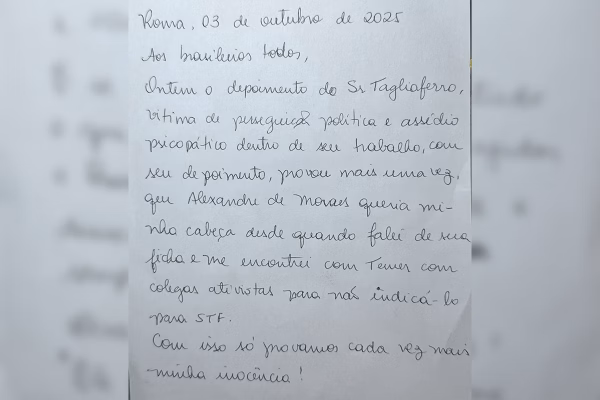 Roma, 03 de outubro de 2025
Aos brasileiros todos,
Ontem o depoimento do Sr Tagliaferro,
vítima de perseguição política e assédio
psicopático dentro de seu trabalho, com
seu depoimento, provou mais uma vez,
que Alexandre de Moraes queria mi-
nha cabeça desde quando falei de sua
ficha e me encontrei com Temer com
colegas ativistas para não indicá-lo
para STF.
Com isso só provamos cada vez mais
minha inocência!